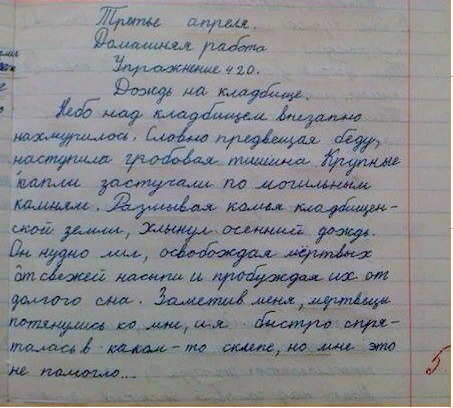 Третье апреля.
Домашняя работа
Упражнение 420.
Дождь на кладбище.
Небо над кладбищем внезапно
нахмурилось. Словно предвещая беду,
наступила гробовая тишина Крупные
капли застучали по могильным
камням. Размывая комья кладбищен-
ской земли, хлынул осенний дождь.
Он нудно лил, освобождая мёртвых
от свежей насыпи и пробуждая их от
долгого сна. Заметив меня, мертвецы
потянулись ко мне, и я быстро спря-
талась в каком-то склепе, но мне это
не помогло...
5